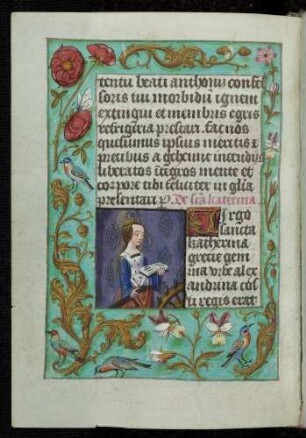 tentu beati anthonii confes
soris tui morbidū ignem
extingui et membris egris
refrigeria prestari. fac nos
quesumus ipsius meritis ⁊
precibus a gehenne incendijs
liberatos ītegros mente et
corpore tibi feliciter in glīa
presentari. P. De scā katerina.
Virgo
sancta
katherina
grecie gem
ma vrbe alex
andrina cos
ti regis erat